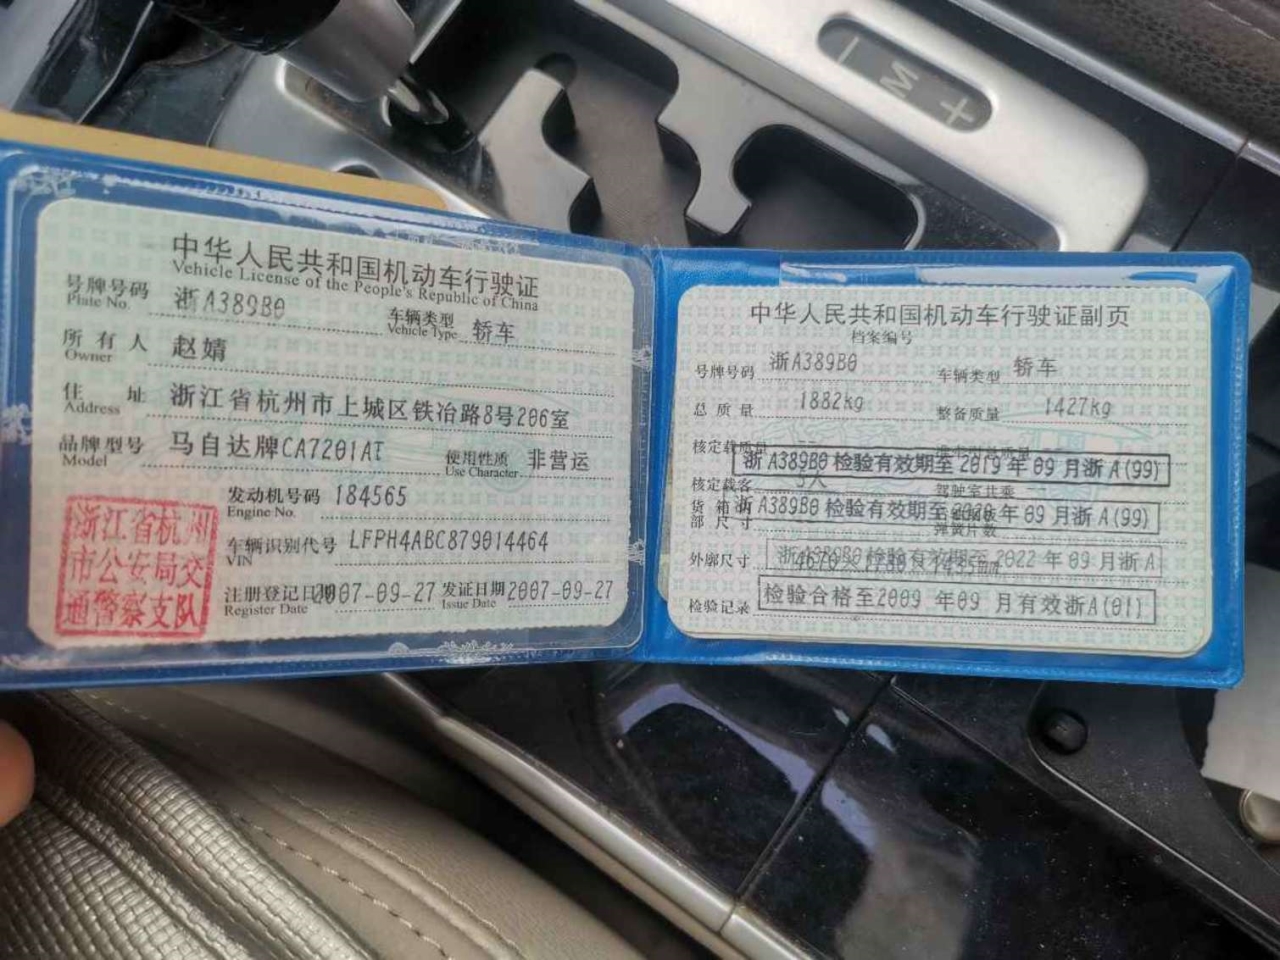 M
中华人民共和国机动车行驶证
Vehicle License of the People's Republic of China
号牌号码 浙A389B0 车辆类型 轿车
Plate No. Vehicle Type
所有人 赵婧
Owner
住址 浙江省杭州市上城区铁冶路8号206室
Address
品牌型号 马自达牌CA7201AT 使用性质 非营运
Model Use Character
发动机号码 184565
Engine No.
车辆识别代号 LFPH4ABC879014464
VIN
注册登记日期 2007-09-27 发证日期 2007-09-27
Register Date Issue Date
浙江省杭州
市公安局交
通警察支队
中华人民共和国机动车行驶证副页
档案编号
号牌号码 浙A389B0 车辆类型 轿车
总质量 1882kg 整备质量 1427kg
核定载质量 --
浙A389B0 检验有效期至 2019 年 09 月浙 A(99)
核定载客 5人 驾驶室共乘
浙A389B0 检验有效期至 2020 年 09 月浙 A(99)
外廓尺寸
检验有效期至 2022 年 09 月浙 A
检验记录
检验合格至2009 年09 月有效浙A(01)